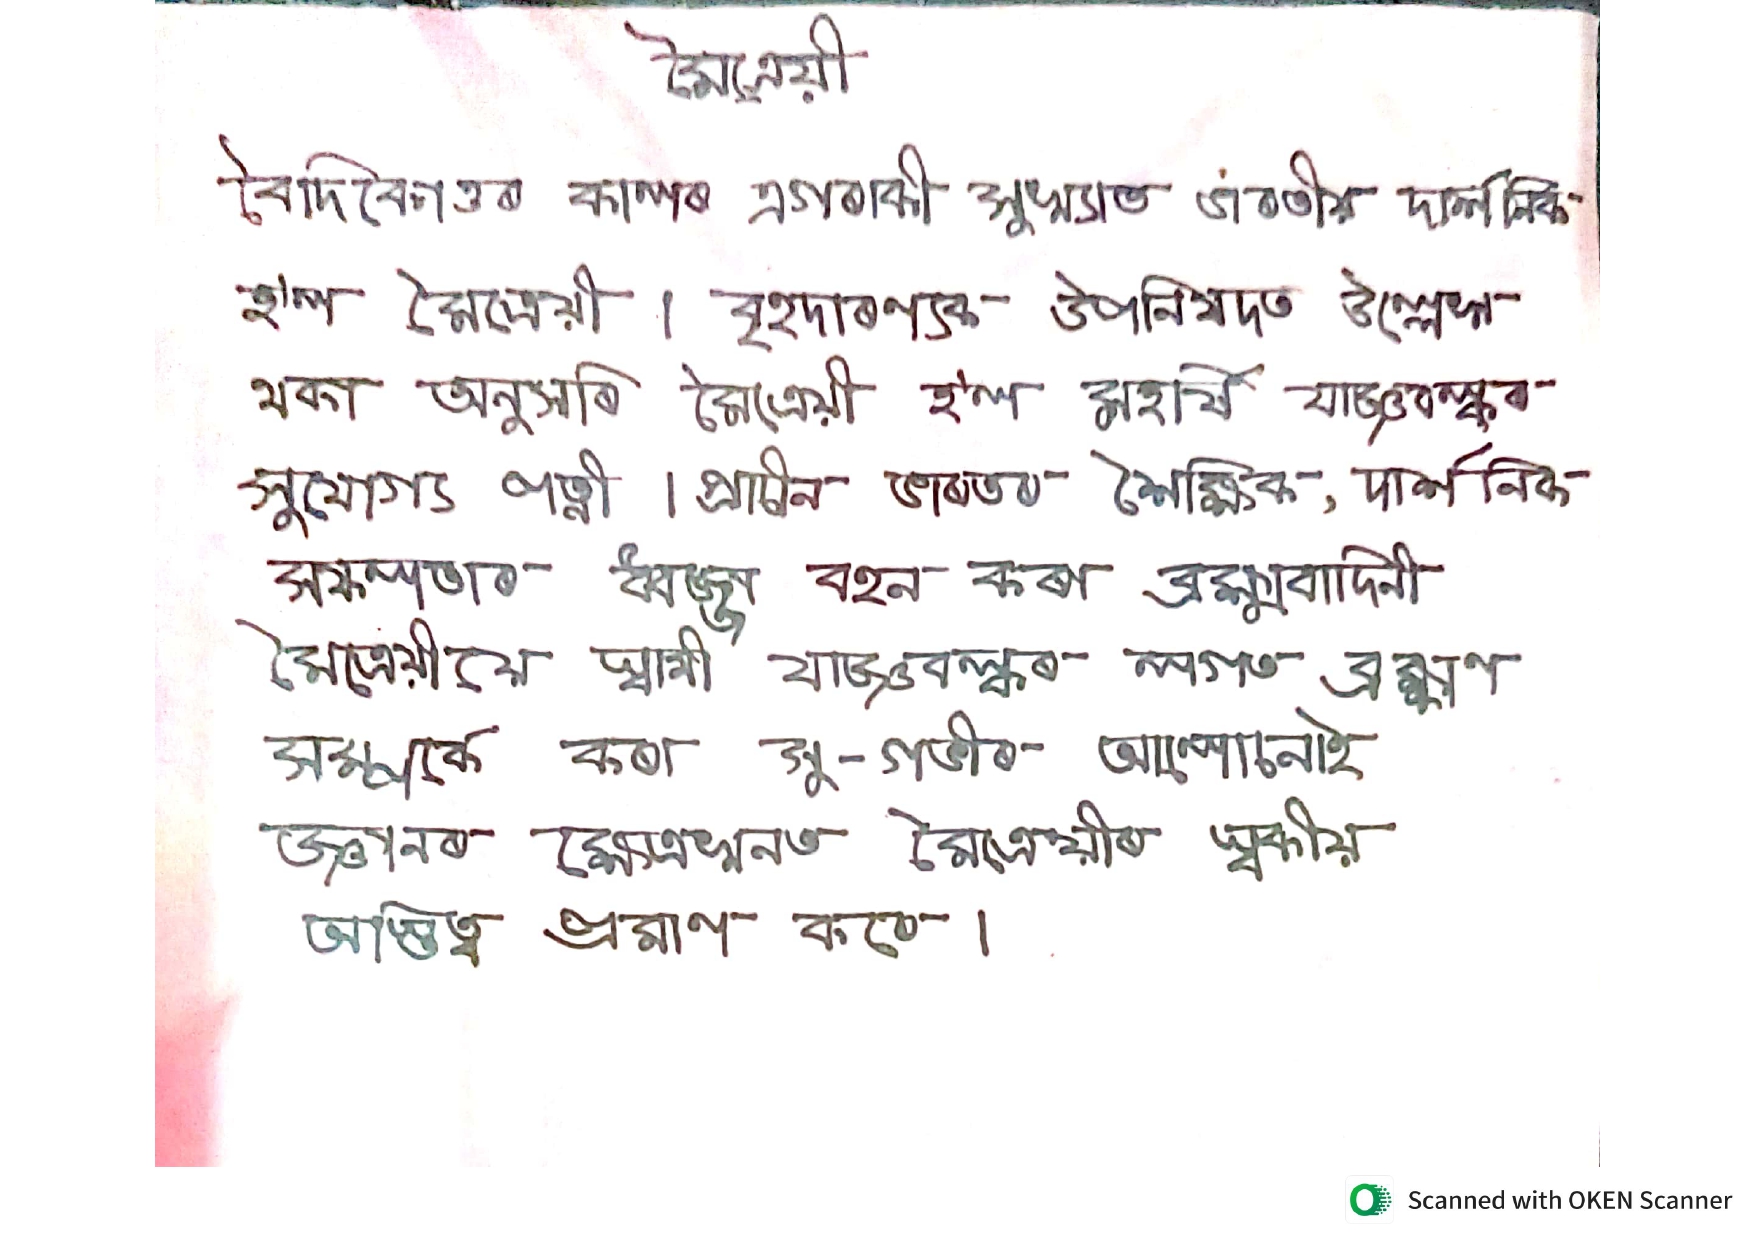 মৈত্ৰেয়ী
বৈদিকোত্তৰ কালৰ এগৰাকী সুখ্যাত ভাৰতীয় দাৰ্শনিক
হ'ল মৈত্ৰেয়ী । বৃহদাৰণ্যক উপনিষদত উল্লেখ
থকা অনুসৰি মৈত্ৰেয়ী হ'ল মহৰ্ষি যাজ্ঞবল্ক্যৰ
সুযোগ্য পত্নী । প্ৰাচীন ভাৰতৰ শৈক্ষিক, দাৰ্শনিক
সফলতাৰ ধ্বজা বহন কৰা ব্ৰহ্মবাদিনী
মৈত্ৰেয়ীয়ে স্বামী যাজ্ঞবল্ক্যৰ লগত ব্ৰহ্মণ
সম্পৰ্কে কৰা সু-গভীৰ আলোচনাই
জ্ঞানৰ ক্ষেত্ৰখনত মৈত্ৰেয়ীৰ স্বকীয়
অস্তিত্ব প্ৰমাণ কৰে ।
Scanned with OKEN Scanner